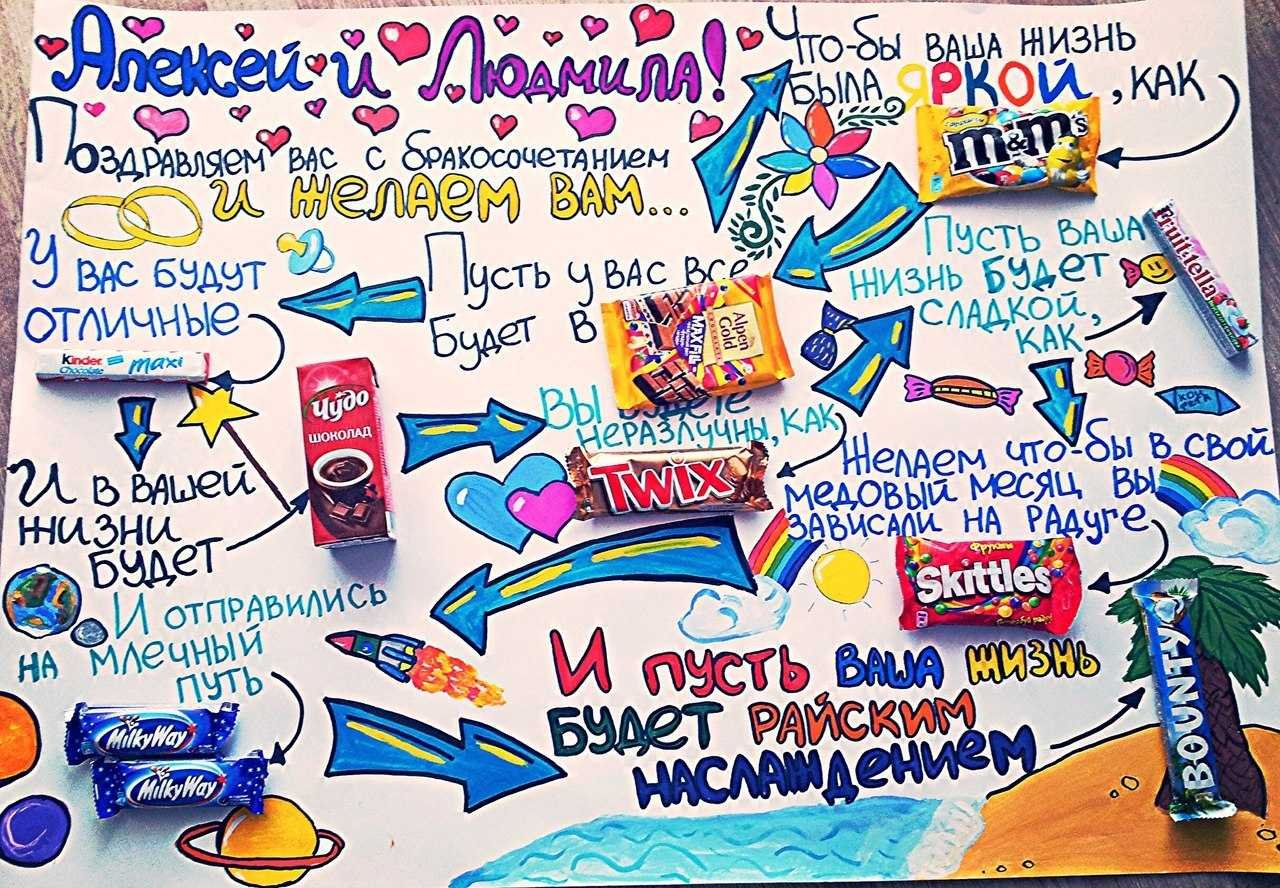 Алексей и Людмила!
Поздравляем вас с бракосочетанием
и желаем вам...
Что-бы ваша жизнь
была яркой, как
m&m's
Пусть у вас все
будет в
Alpen Gold
MAX FUN
У вас будут
отличные
Kinder Chocolate maxi
И в вашей
жизни
будет
Чудо
ШОКОЛАД
Вы будете
неразлучны, как
TWIX
Пусть ваша
жизнь будет
сладкой,
как
Fruittella
Желаем что-бы в свой
медовый месяц вы
зависали на радуге
Фрукты
Skittles
И отправились
на млечный
путь
MilkyWay
MilkyWay
И пусть ваша жизнь
будет райским
наслаждением
BOUNTY